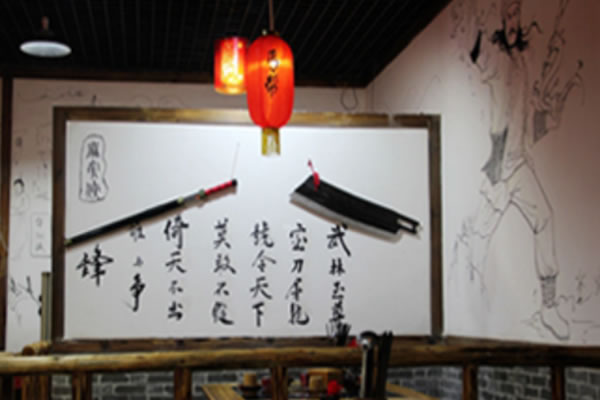 武林至尊
宝刀屠龍
號令天下
莫敢不從
倚天不出
誰与争
鋒